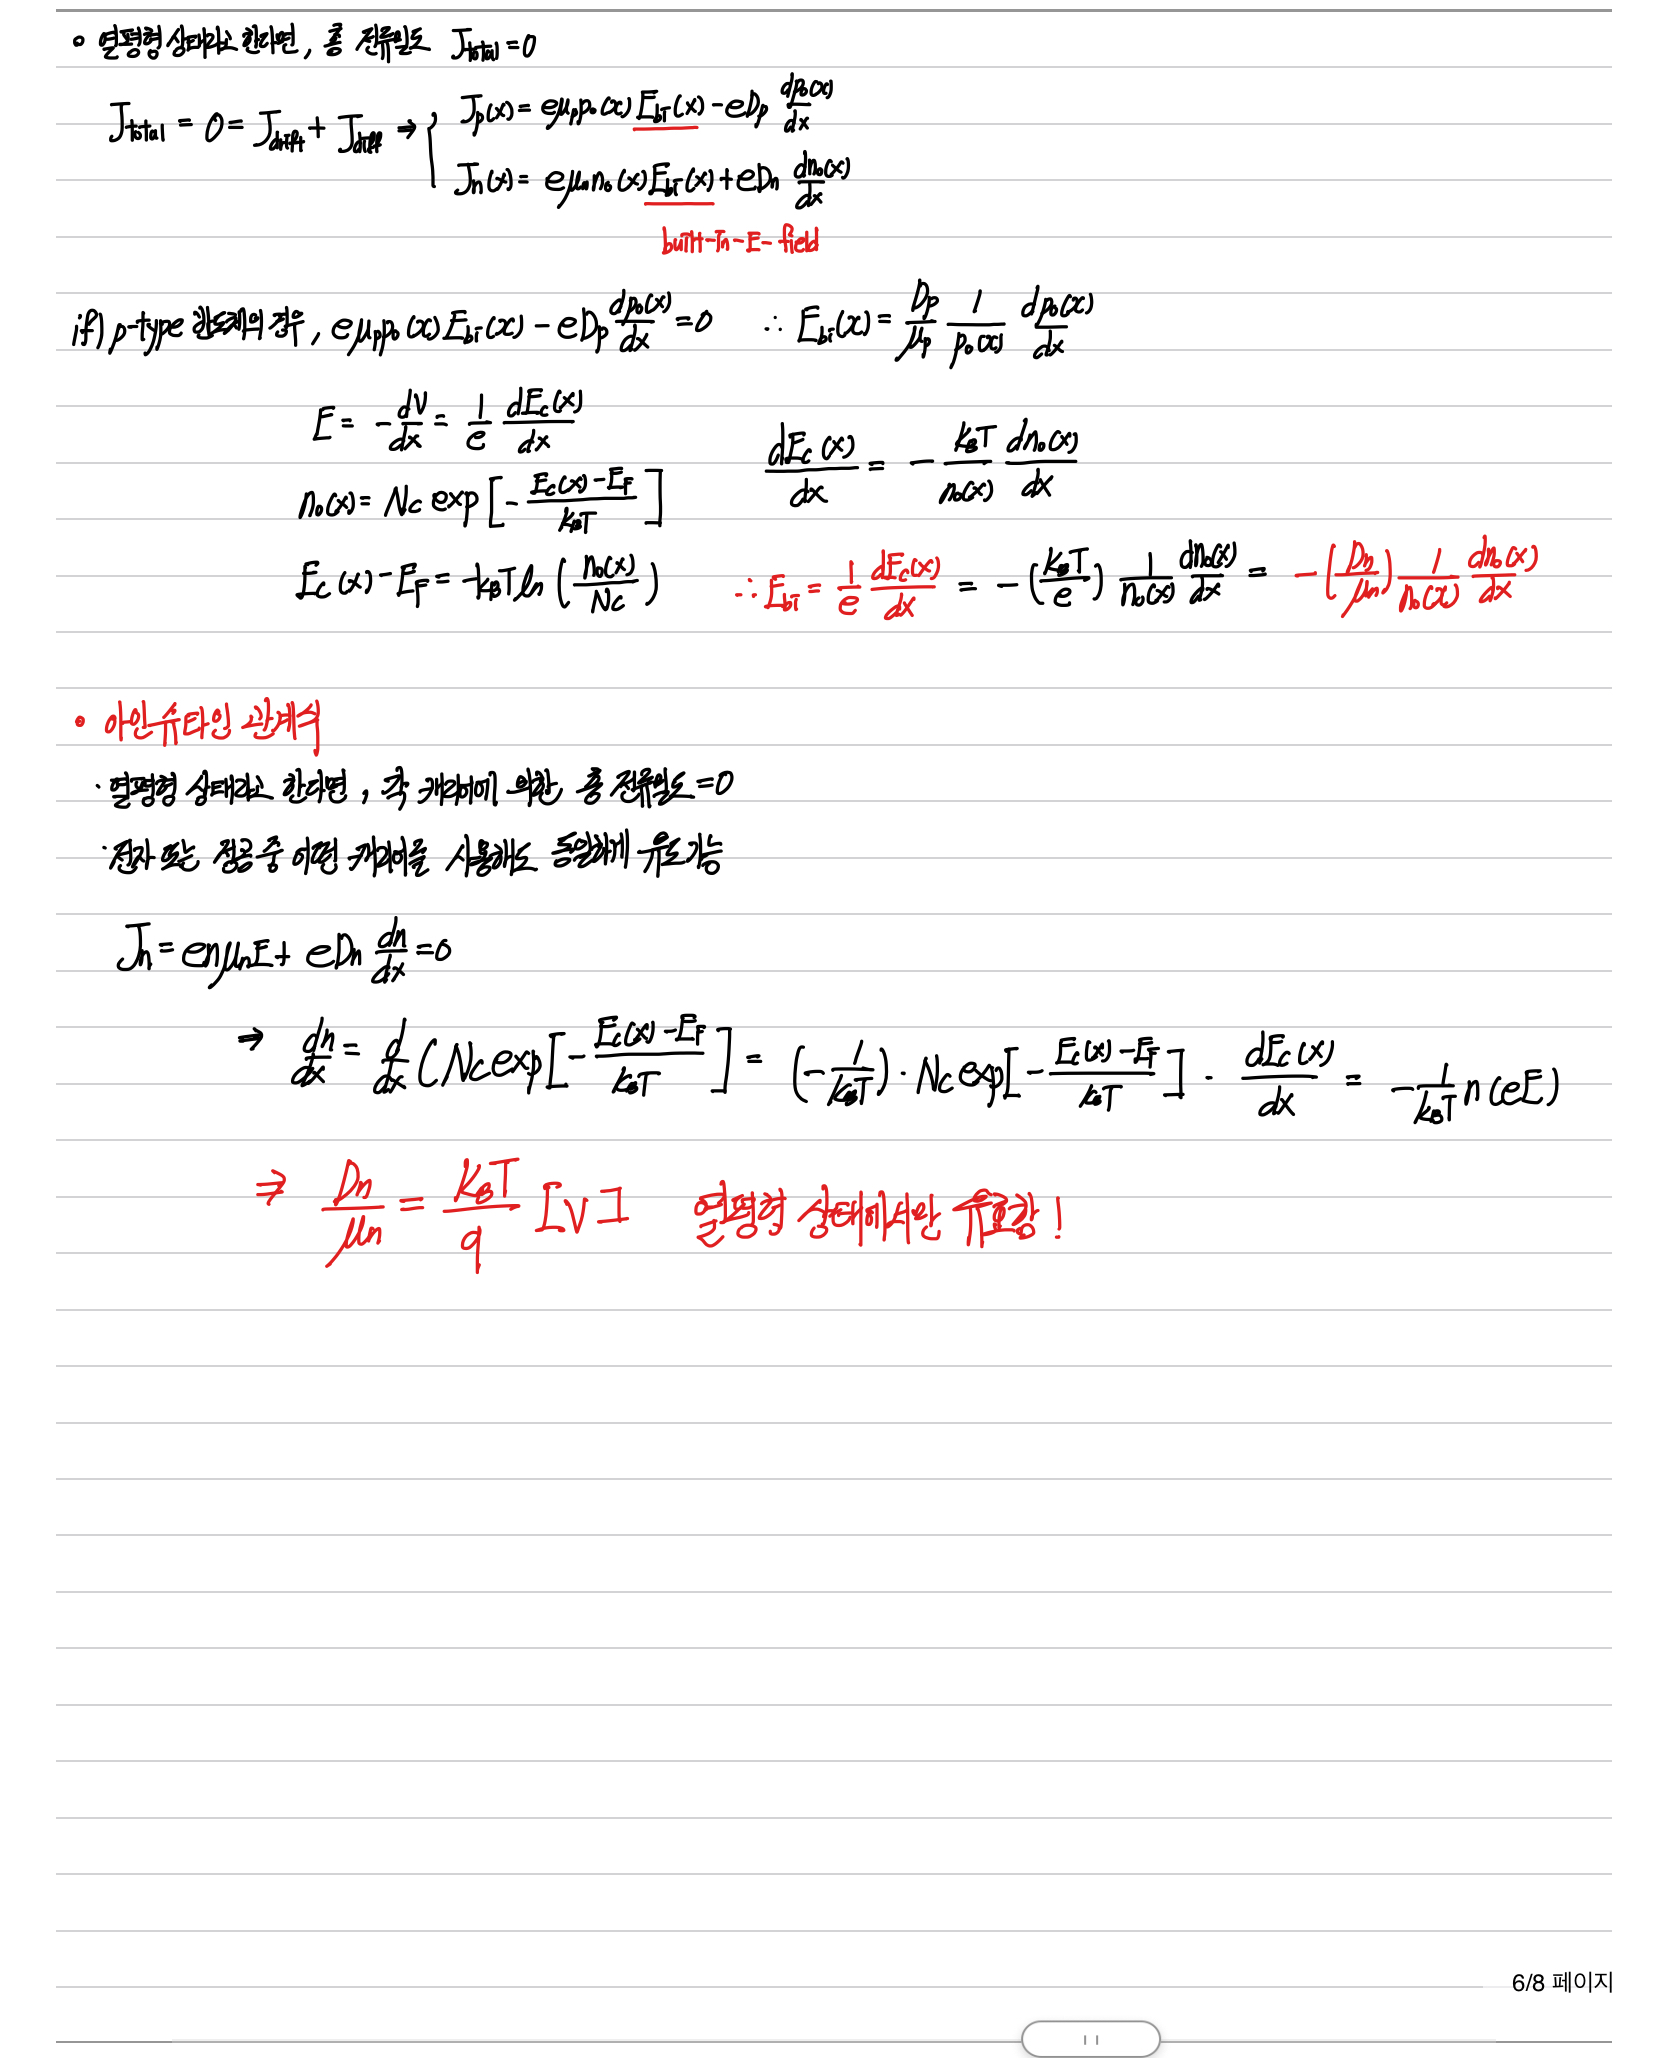 ◦ 열평형 상태라고 한다면, 총 전류밀도 J_total = 0
J_total = 0 = J_drift + J_diff ⇒ { J_p(x) = eμ_p p₀(x) E_bi(x) - eD_p dp₀(x)/dx
J_n(x) = eμ_n n₀(x) E_bi(x) + eD_n dn₀(x)/dx
built-in-E-field
if) p-type 반도체의 경우, eμ_p p₀(x) E_bi(x) - eD_p dp₀(x)/dx = 0 ∴ E_bi(x) = D_p/μ_p 1/p₀(x) dp₀(x)/dx
E = -dV/dx = 1/e dE_c(x)/dx
dE_c(x)/dx = - k_BT/n₀(x) dn₀(x)/dx
n₀(x) = N_c exp[-(E_c(x)-E_F)/k_BT]
E_c(x) - E_F = -k_BT ln(n₀(x)/N_c) ∴ E_bi = 1/e dE_c(x)/dx = -(k_BT/e) 1/n₀(x) dn₀(x)/dx = -(D_n/μ_n) 1/n₀(x) dn₀(x)/dx
◦ 아인슈타인 관계식
· 열평형 상태라고 한다면, 각 캐리어에 의한 총 전류밀도 = 0
· 전자 또는 정공 중 어떤 캐리어를 사용해도 동일하게 유도 가능
J_n = enμ_nE + eD_n dn/dx = 0
⇒ dn/dx = d/dx (N_c exp[-(E_c(x)-E_F)/k_BT] = (-1/k_BT) · N_c exp[-(E_c(x)-E_F)/k_BT] · dE_c(x)/dx = -1/k_BT n(eE)
⇒ D_n/μ_n = k_BT/q [V] 열평형 상태에서만 유효함!
6/8 페이지